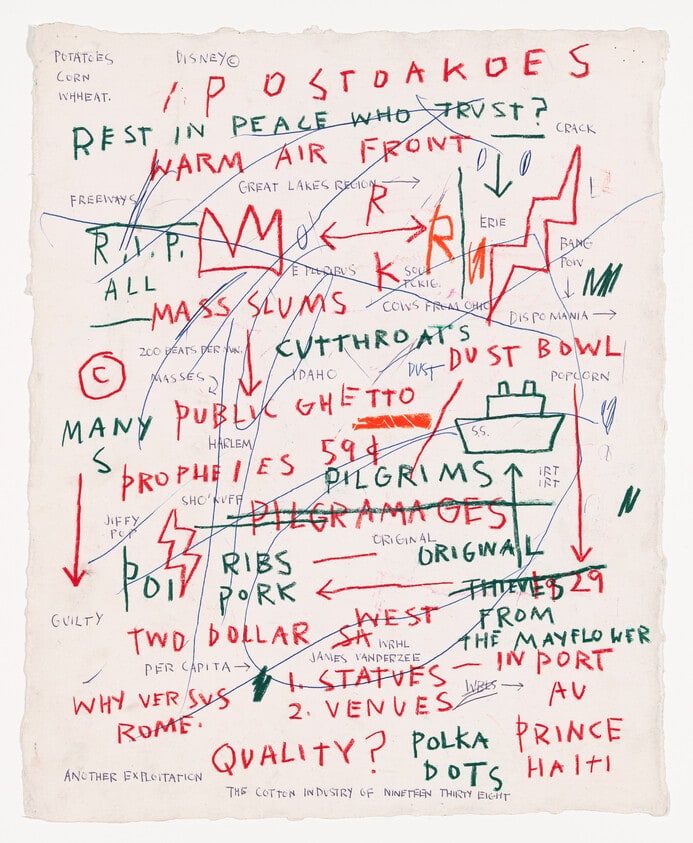 POTATOES
CORN
WHHEAT.
DISNEY©
POSTOAKOES
REST IN PEACE WHO TRUST?
CRACK
WARM AIR FRONT
GREAT LAKES REGION
FREEWAYS
R
R
ERIE
R.I.P.
ALL
BANG
POW
E PLURIBUS
K
COWS FROM OHIO
DISPOMANIA
MASS SLUMS
CUTTHROATS
200 BEATS PER MN.
©
IDAHO
DUST
DUST BOWL
POPCORN
MASSES
PUBLIC GHETTO
MANY
S
HARLEM
59¢
S.S.
PROPHEIES
PILGRIMS
IRT
IRT
SHO'NUFF
PILGRAMAGES
JIFFY
POP
ORIGINAL
ORIGINAL
POI
RIBS
PORK
THIEVES
29
GUILTY
WEST
FROM
TWO DOLLAR
SA
WRHL
THE MAYFLOWER
JAMES VANDERZEE
PER CAPITA
1. STATUES
IN PORT
WHY VERSUS
2. VENUES
AU
ROME.
QUALITY?
POLKA
DOTS
PRINCE
HAITI
ANOTHER EXPLOITATION
THE COTTON INDUSTRY OF NINETEEN THIRTY EIGHT